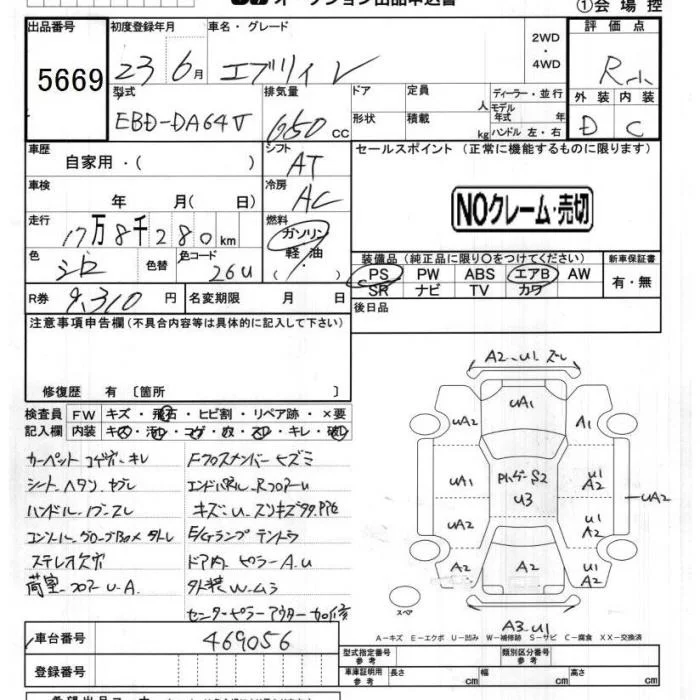 オークション出品申込書 ①会場控
出品番号 初度登録年月 車名・グレード 2WD・4WD 評価点
5669 23 6月 エブリィ V
型式 排気量 ドア 定員 人 ディーラー・並行 外装 内装
EBD-DA64V 650 cc 形状 積載 kg モデル年式 年 ハンドル 左・右 D C
車歴 シフト セールスポイント (正常に機能するものに限ります)
自家用・( ) AT
車検 年 月( 日) 冷房 AC NOクレーム・売切
走行 17万8千280km 燃料 ガソリン 軽油 ( )
装備品 (純正品に限り○をつけてください) 新車保証書
色 シロ 色替 色コード 26U PS PW ABS エアB AW 有・無
SR ナビ TV カワ
R券 9,310円 名変期限 月 日 後日品
注意事項申告欄(不具合内容等は具体的に記入して下さい)
修復歴 有 〔箇所 〕
検査員 FW キズ・飛石・ヒビ割・リペア跡・×要
記入欄 内装 キズ・汚レ・コゲ・穴・スレ・キレ・破レ
カーペット コゲ穴・キレ
シート ヘタリ・ヤブレ
ハンドル・ノブ・スレ
コンソール・グローブBOX ダメレ
ステレオ欠穴
荷室・フロアーU・A
Fクロスメンバーヒズミ
エンドパネル・RフロアーU
キズ・U・スリキズ多々
E/Gランプテントウ
ドア内 ピラーA・U
外装W・ムラ
センターピラーアウター加修
A2・U1 ズレ
UA1
UA2 A1
UA1 PルーフS2 U3 U1 A2
UA2 UA2 U1 A2
A2 A2 U1 A2
スペア
A3・U1
A-キズ E-エクボ U-凹み W-補修跡 S-サビ C-腐食 XX-交換済
車台番号 469056
型式指定番号 参考 類別区分番号 参考
登録番号
車庫証明用 参考 長さ cm 幅 cm 高さ cm
希望出品コーナー